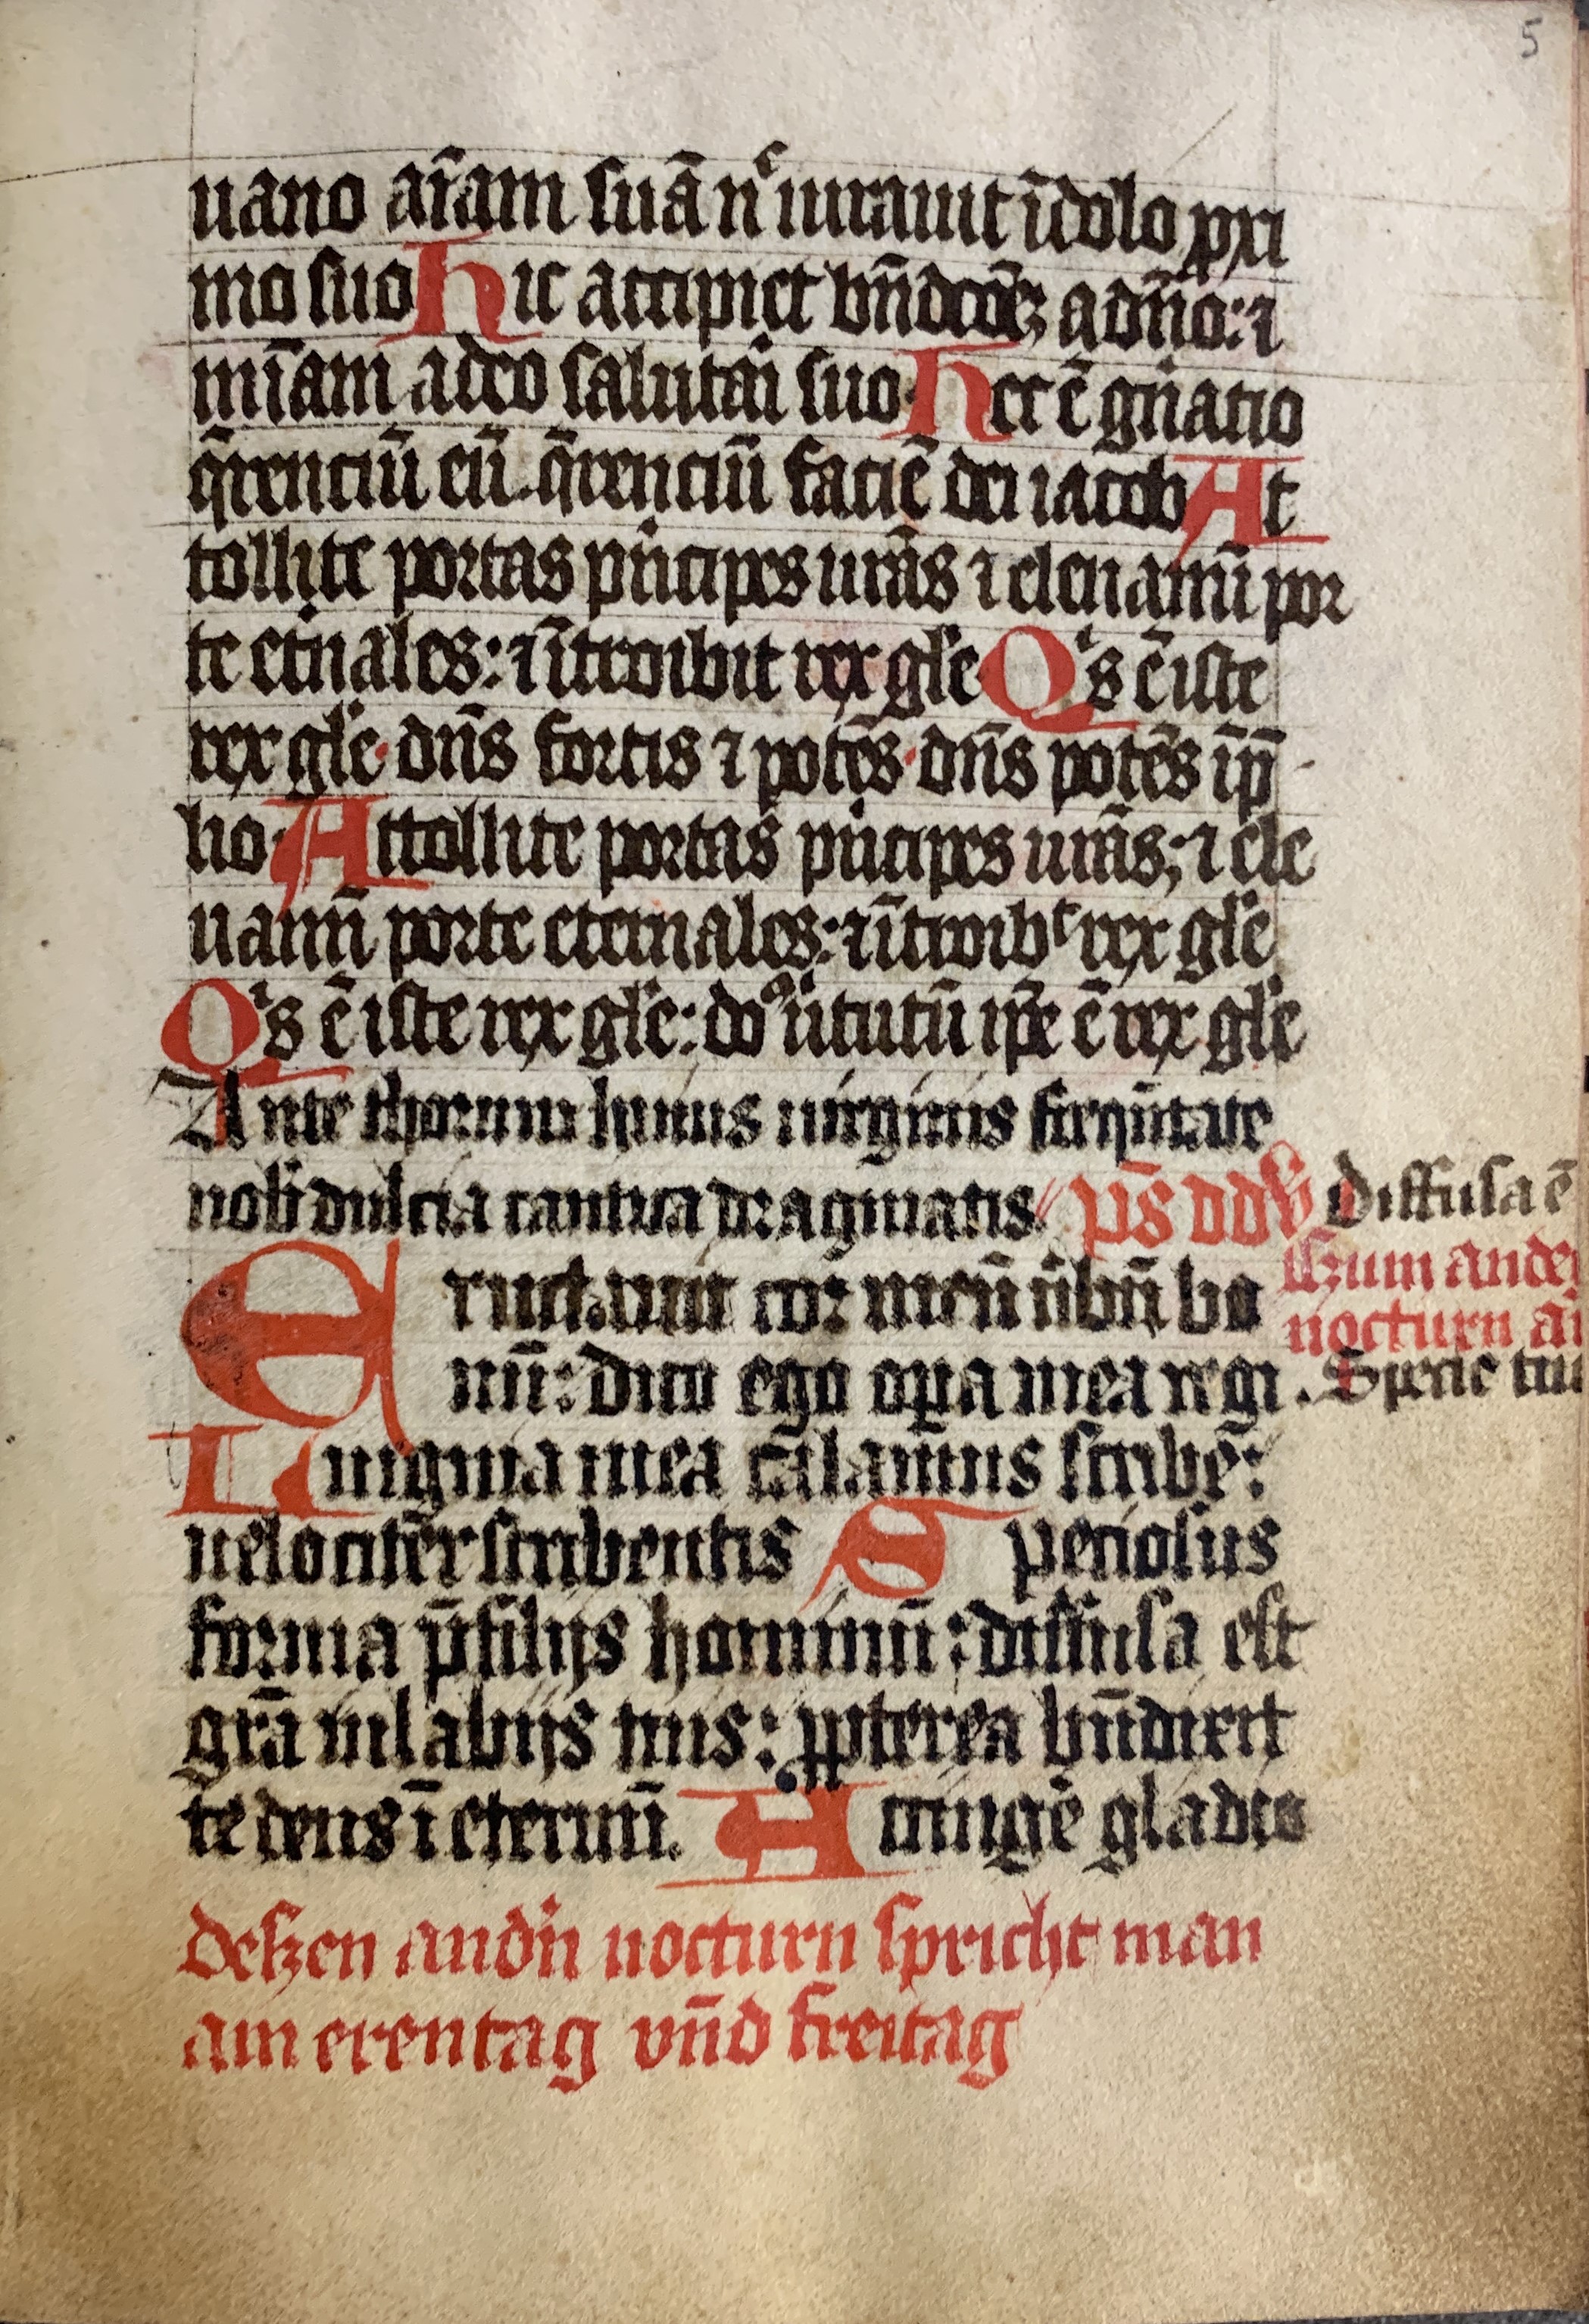 5
uano ai̅am suā nͨ iurauit ī dolo ꝓxi
mo suo Hic accipiet bn̄dcōeꝫ a dn̄o: ⁊
mi̅am a deo salutai suo. Hec ē gn̄atio
q̄renciū eū. q̄renciū faciē dei iacob At
tollite portas pͥncipes urās ⁊ eleuamī por
te etn̄ales: ⁊ ītroibit rex gl̄e Qͥs ē iste
rex gl̄e. dn̄s fortis ⁊ potēs. dn̄s potēs ī p̄
lio. Attollite portas pͥncipes urās; ⁊ ele
uamī porte eternales: ⁊ ītroibᵗ rex gl̄e
Qͥs ē iste rex gl̄e: do⁹ uͥtutū ip̄e ē rex gl̄e
Ante thorum huius uirginis freqn̄tate
nob̄ dulcia cantica dragmatis. ps̄ dd̄ Diffusa ē
Eructauit cor meū ūbū bo
tzum ander
nocturn
nū: dico ego oꝑa mea regi . Specie tua
Lingwa mea calamus scribe̅:
uelociter scribentis Speciosus
forma p̄ filijs hominū: diffusa est
grā in labijs tuis: ꝓpterea bn̄dixit
te deus ī eternū. Accingē gladio
Deſzen andn̄ nocturn spricht man
am erentag vn̄d freitag